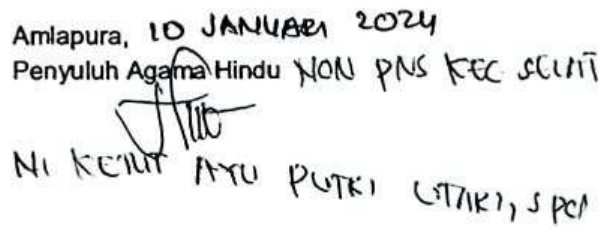 Amlapura, 10 JANUARI 2024
Penyuluh Agama Hindu NON PNS KEC SELAT
NI KETUT AYU PUTRI UTARI, S.Pd